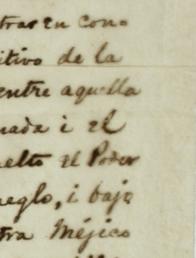 trar en cono
itivo de la
entre aquella
nada i el
uelto el Poder
reglo, i bajo
tra Méjico